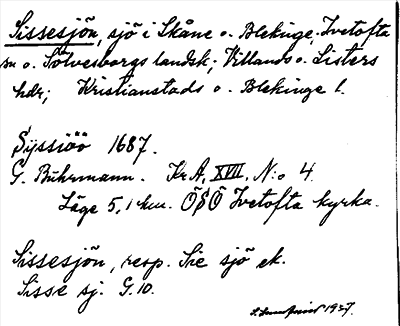 Sissesjön, sjö i Skåne o. Blekinge; Ivetofta
sn o. Sölvesborgs landsk; Villands o. Listers
hdr; Kristianstads o. Blekinge l.
Syssiöö 1687.
G. Buhrmann. Kr.A, XVII, N:o 4.
Läge 5,1 km. ÖSÖ Ivetofta kyrka.
Sissesjön, resp. Sie sjö ek.
Sisse sj. G.10.
1927.